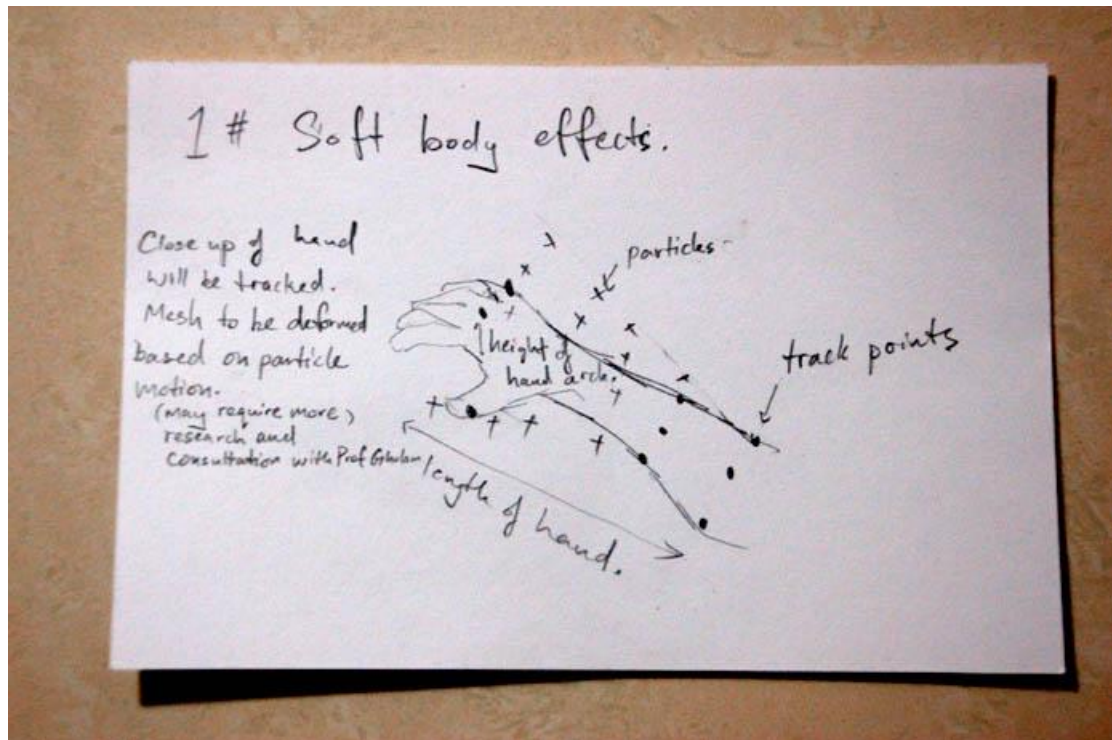 1# Soft body effects.
Close up of hand
will be tracked.
Mesh to be deformed
based on particle
motion.
(may require more)
research and
Consultation with Prof
particles
height of
hand arch.
track points
length of hand.